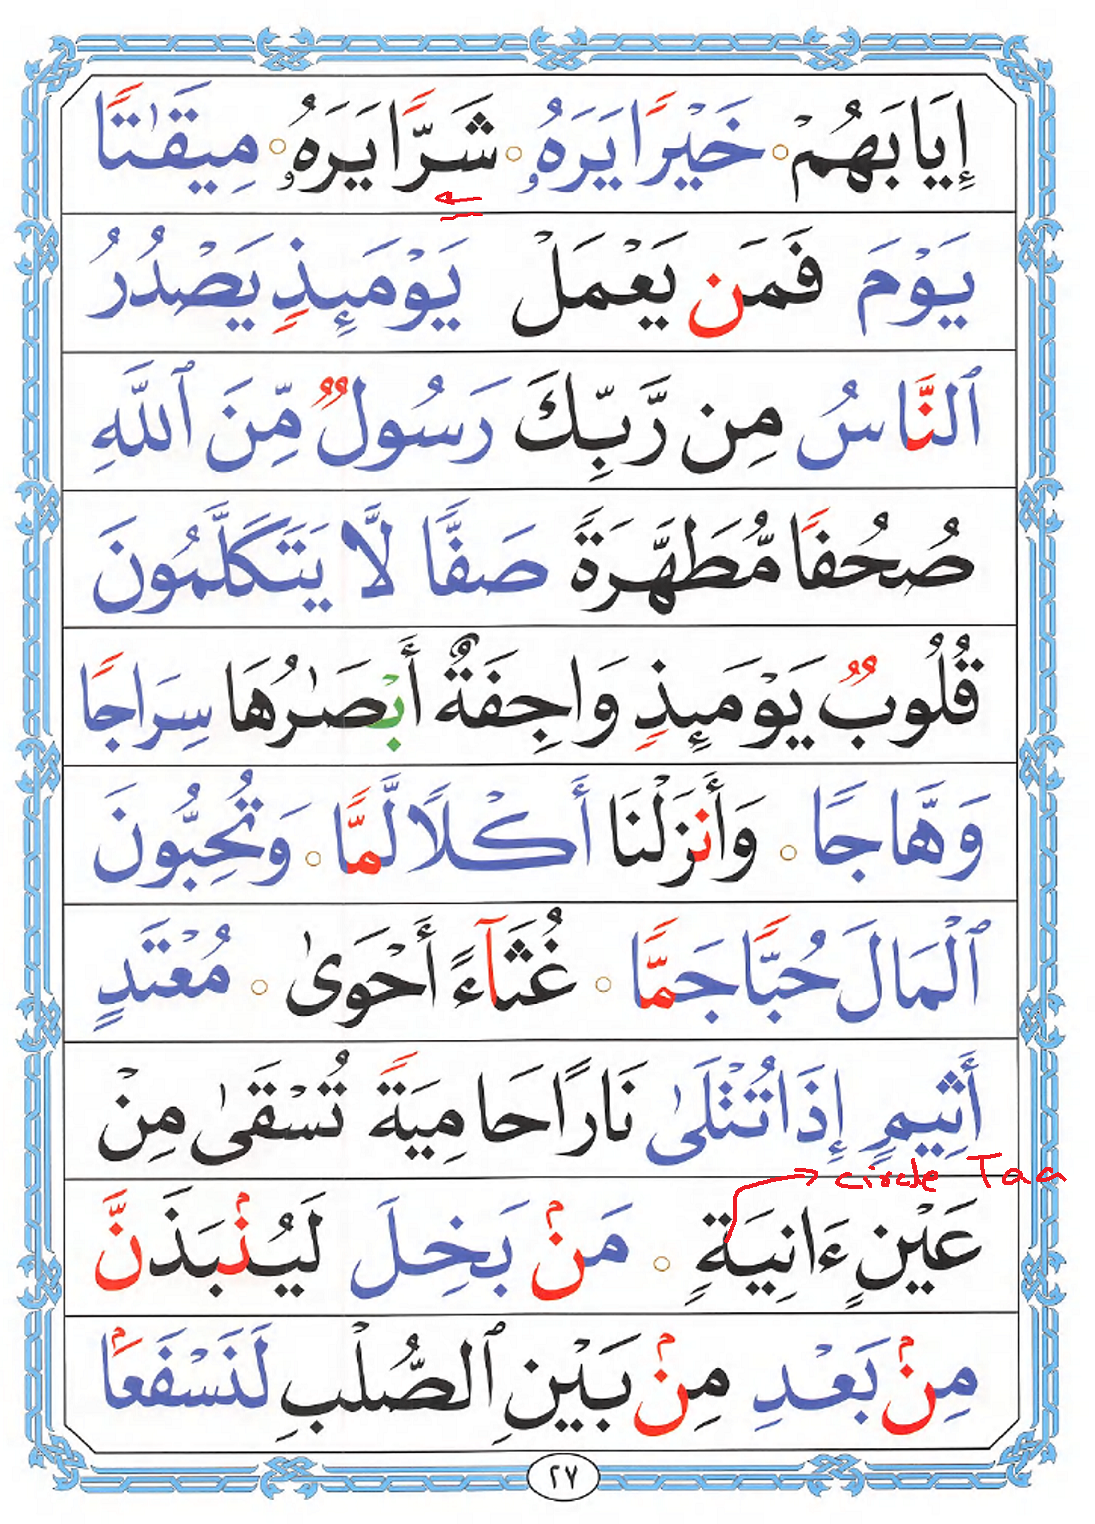 إِيَابَهُمْ ○ خَيْرًا يَرَهُۥ ○ شَرًّا يَرَهُۥ ○ مِيقَٰتًا
يَوْمَ فَمَن يَعْمَلْ يَوْمَئِذٍ يَصْدُرُ
ٱلنَّاسُ مِن رَّبِّكَ رَسُولٌ مِّنَ ٱللَّهِ
صُحُفًا مُّطَهَّرَةً صَفًّا لَّا يَتَكَلَّمُونَ
قُلُوبٌ يَوْمَئِذٍ وَاجِفَةٌ أَبْصَٰرُهَا سِرَاجًا
وَهَّاجًا ○ وَأَنزَلْنَا أَكْلًا لَّمًّا ○ وَتُحِبُّونَ
ٱلْمَالَ حُبًّا جَمًّا ○ غُثَآءً أَحْوَىٰ ○ مُعْتَدٍ
أَثِيمٍ إِذَا تُتْلَىٰ نَارًا حَامِيَةً تُسْقَىٰ مِنْ
circle Taa
عَيْنٍ ءَانِيَةٍ ○ مَنۢ بَخِلَ لَيُنۢبَذَنَّ
مِنۢ بَعْدِ مِنۢ بَيْنِ ٱلصُّلْبِ لَنَسْفَعًۢا
٢٧